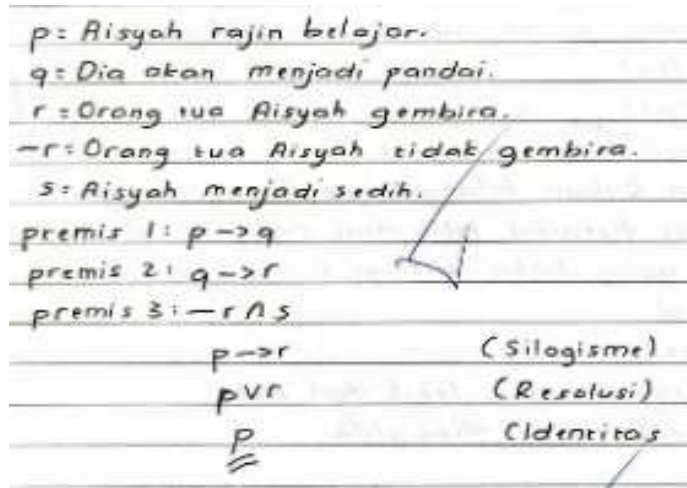 p: Aisyah rajin belajar.
q: Dia akan menjadi pandai.
r: Orang tua Aisyah gembira.
-r: Orang tua Aisyah tidak gembira.
s: Aisyah menjadi sedih.
premis 1: p->q
premis 2: q->r
premis 3: -r ∩ s
p->r (Silogisme)
p∨r (Resolusi)
p (Identitas